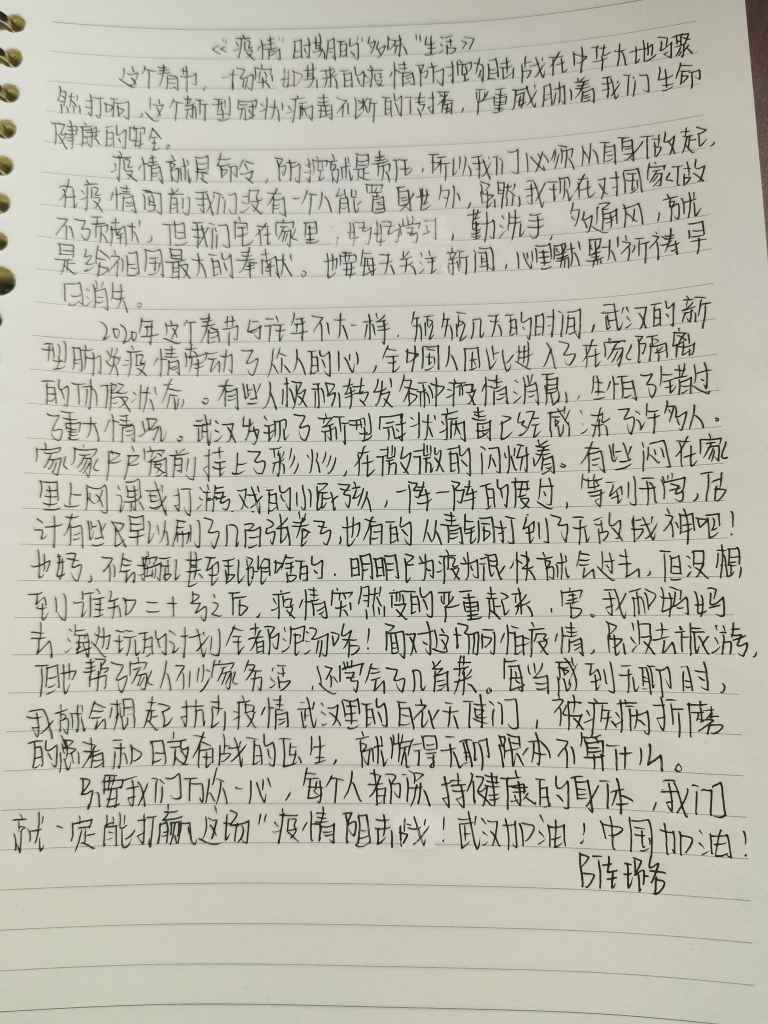 《“疫情”时期的“多味”生活》
这个春节，一场突如其来的疫情防控阻击战在中华大地骤
然打响，这个新型冠状病毒不断的传播，严重威胁着我们生命
健康的安全。
疫情就是命令，防控就是责任，所以我们必须从自身做起，
在疫情面前我们没有一个人能置身世外，虽然我现在对国家做
不了贡献，但我们宅在家里，好好学习，勤洗手，多通风，就
是给祖国最大的奉献。也要每天关注新闻，心里默默祈祷早
日消失。
2020年这个春节与往年不大一样．短短几天的时间，武汉的新
型肺炎疫情牵动了众人的心，全中国人因此进入了在家隔离
的休假状态。有些人极积转发各种疫情消息，生怕了错过
了重大情况。武汉发现了新型冠状病毒已经感染了许多人。
家家户户窗前挂上了彩灯，在微微的闪烁着。有些闷在家
里上网课或打游戏的小孩，一阵一阵的度过，等到开学，估
计有些早以刷了几百张卷子，也有的从青铜打到了无敌战神吧！
也好，不会捣乱甚至乱跑啥的．明明以为疫为很快就会过去，但没想
到谁知二十号之后，疫情突然变的严重起来，害、我和妈妈
去海边玩的计划全都泡汤啥！面对这场可怕疫情，虽没去旅游，
但也帮了家人不少家务活，还学会了几首菜。每当感到无聊时，
我就会想起抗击疫情武汉里的白衣天使们，被疾病折磨
的患者和日夜奋战的医生，就觉得无聊跟本不算什么。
只要我们万众一心，每个人都保持健康的身体，我们
就一定能打赢这场“疫情阻击战！武汉加油！中国加油！